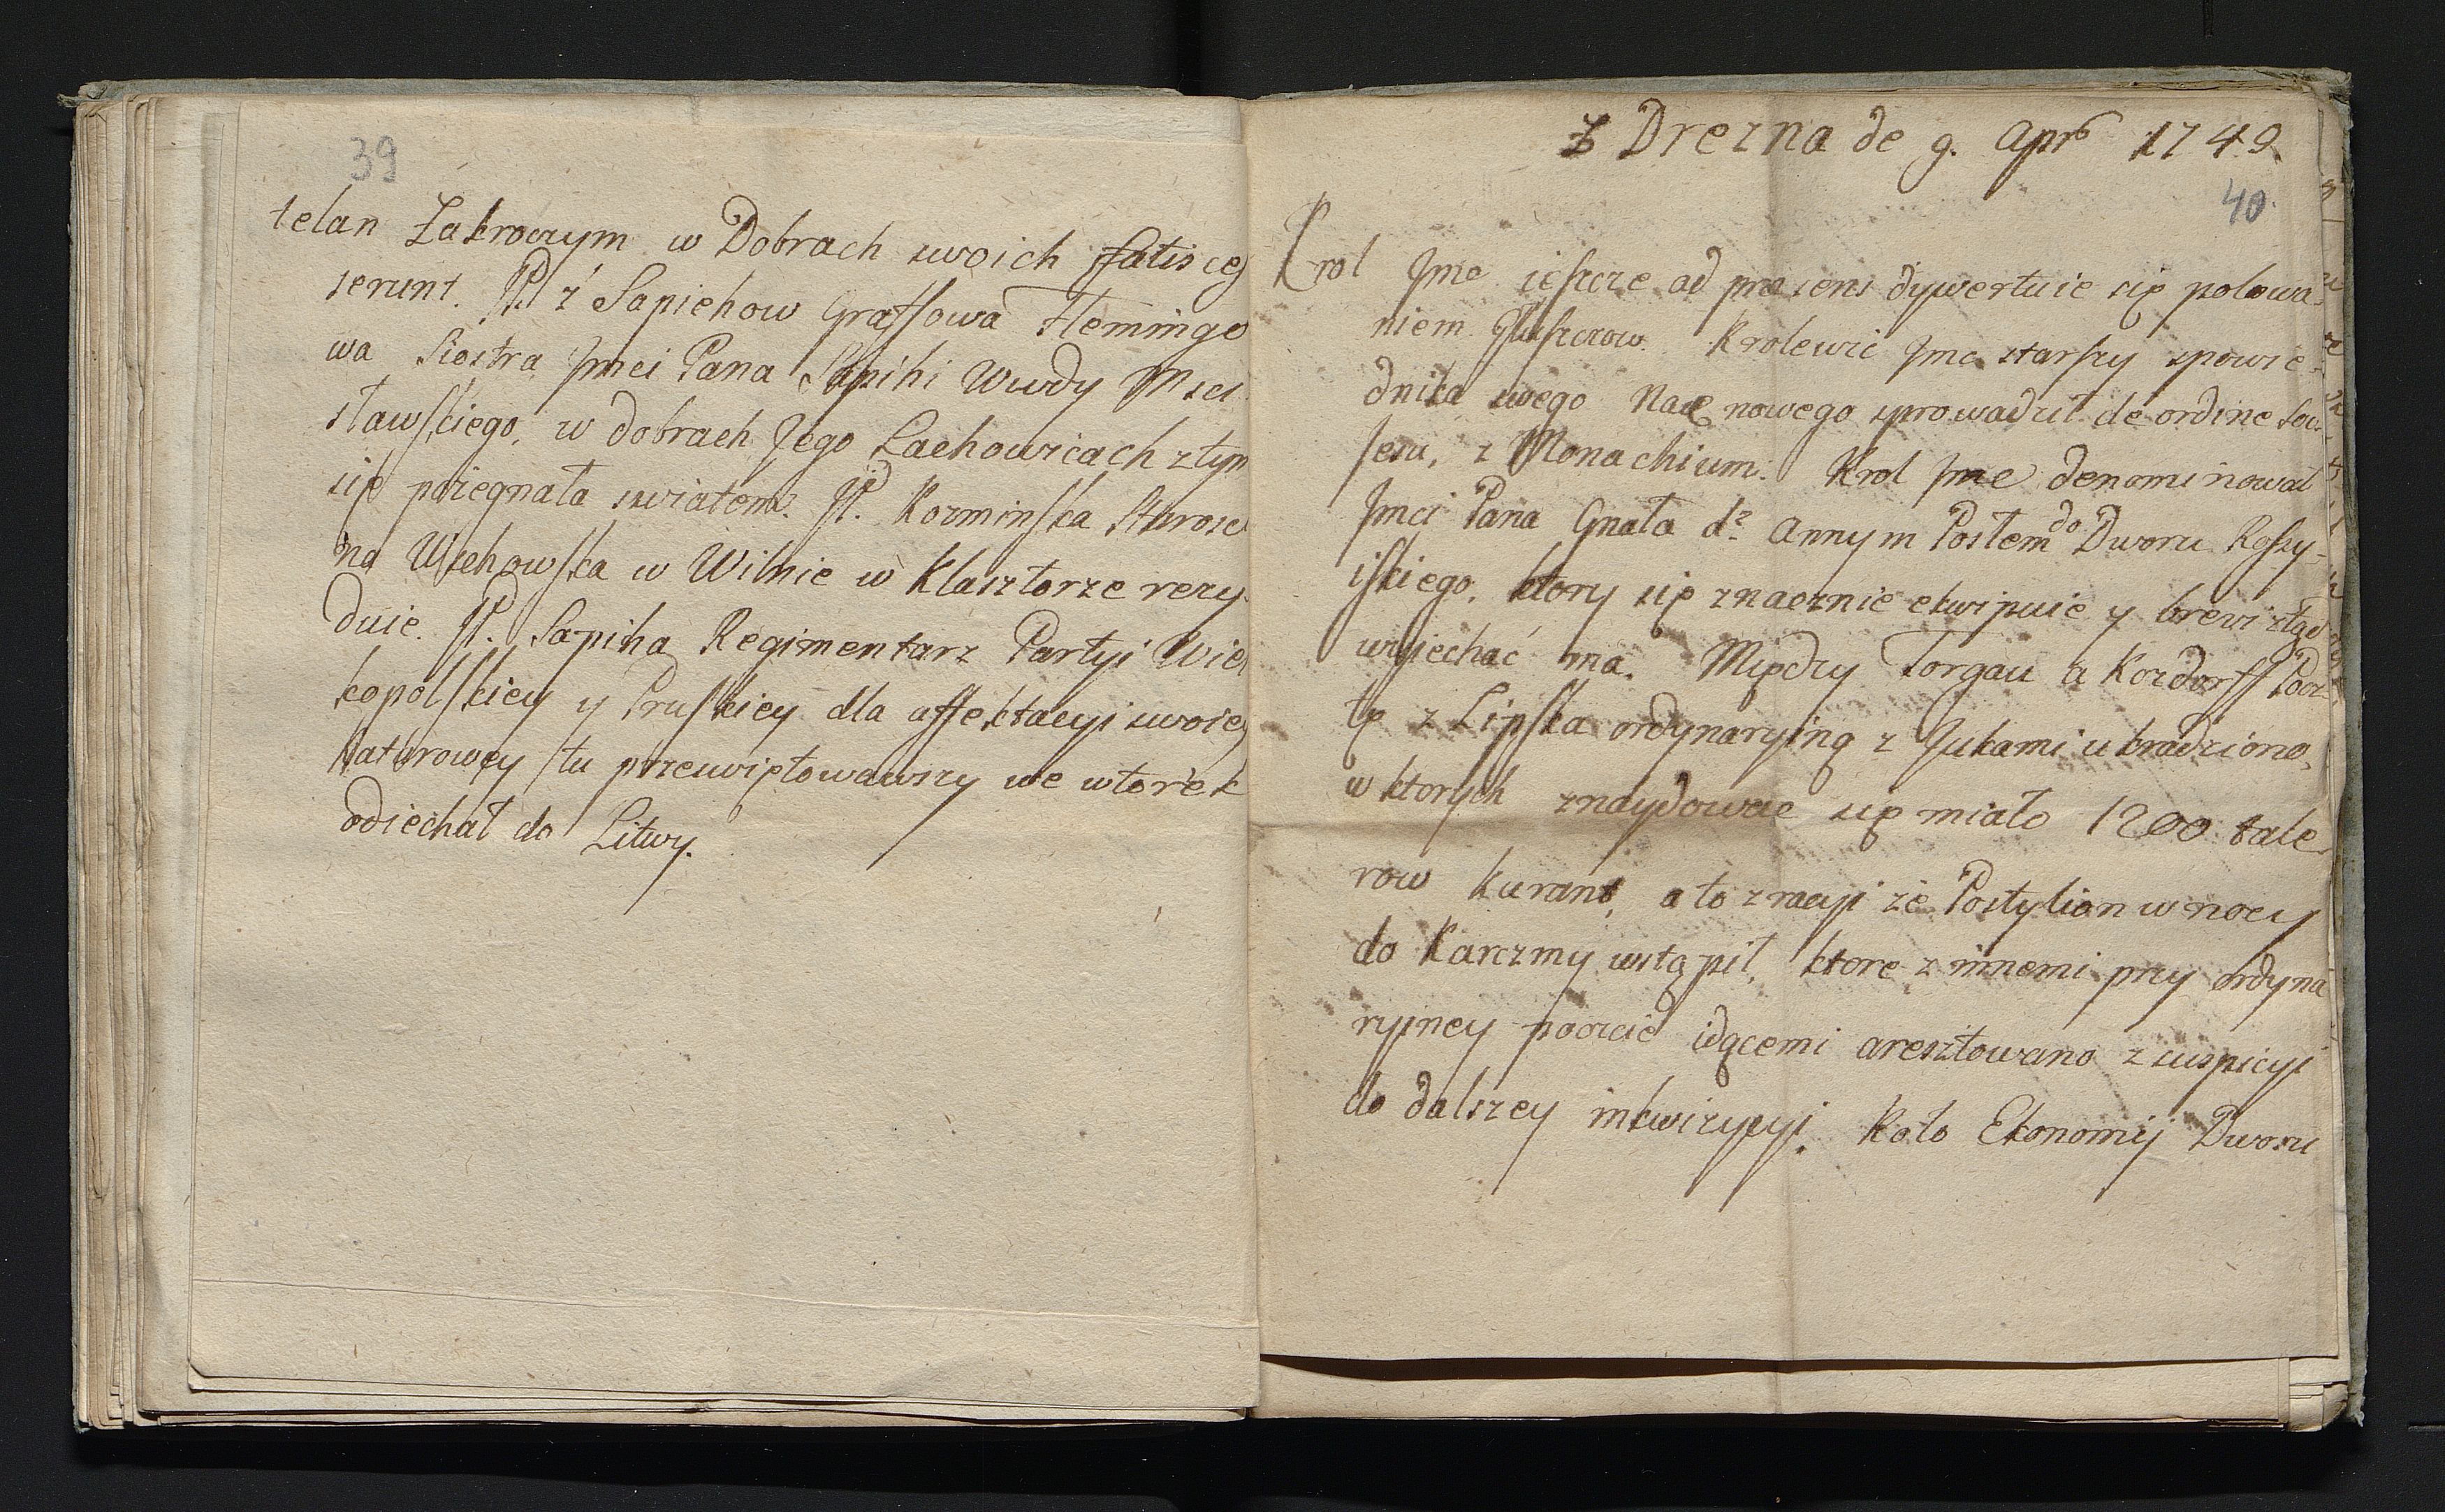 39
telan Zakroczym w Dobrach swoich fatis ces
serunt. JP. z Sapiehow Graffowa Flemingo
wa Siostra Jmci Pana Sapihi Wwdy Msci
sławskiego, w dobrach Jego Lachowicach z tym
się pożegnała swiatem. JP. Kozminska Starosci
na Wschowska w Wilnie w Klasztorze rezy
duie. JP. Sapiha Regimentarz Partyi Wiel
kopolskiey y Pruskiey dla affektacyi swoiey
katarowey tu przeswiętowawszy we wtorek
odiechał do Litwy.
Z Drezna de 9. Apr 1749.
40
Krol Jmc ieszcze ad praesens dywertuie się polowa-
niem Głuszcow. Krolewic Jmc starszy spowie-
dnika swego nowego sprowadził de ordine Soc:
Jesu, z Monachium. Krol Jmc denominował
Jmci Pana Gnała d' Annym Posłem do Dworu Rossy-
iskiego, ktory się znacznie ekwipuie y brevi ztąd
wyiechać ma. Między Torgau a Kozdorff Pocz
tę z Lipska ordynaryiną z Jukami ukradziono,
w ktorych znaydowac się miało 1200 tale
row kurant, a to z racyi że Postylion w nocy
do Karczmy wstąpił, ktore z innemi przy ordyna
ryiney poczcie idącemi aresztowano z suspicyi
do dalszey inkwizycyi. Koło Ekonomij Dworu